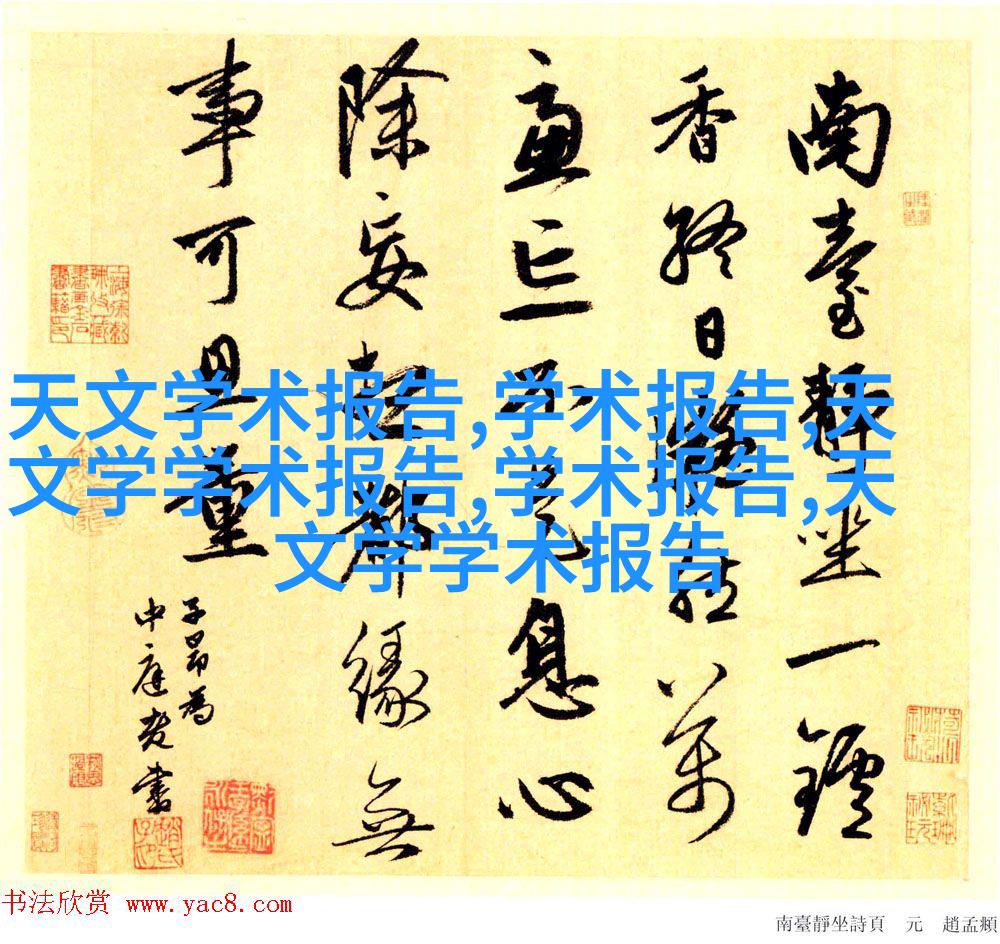 南臺靜坐一鑪
香終日凝然萬
慮亡不是息心
除妄想都緣無
事可思量
子昂為
中庭老書
天文学术报告,学术报告,天
文学学术报告,学术报告,天
文学学术报告
书法欣赏 www.yac8.com
南臺靜坐詩頁 元 趙孟頫